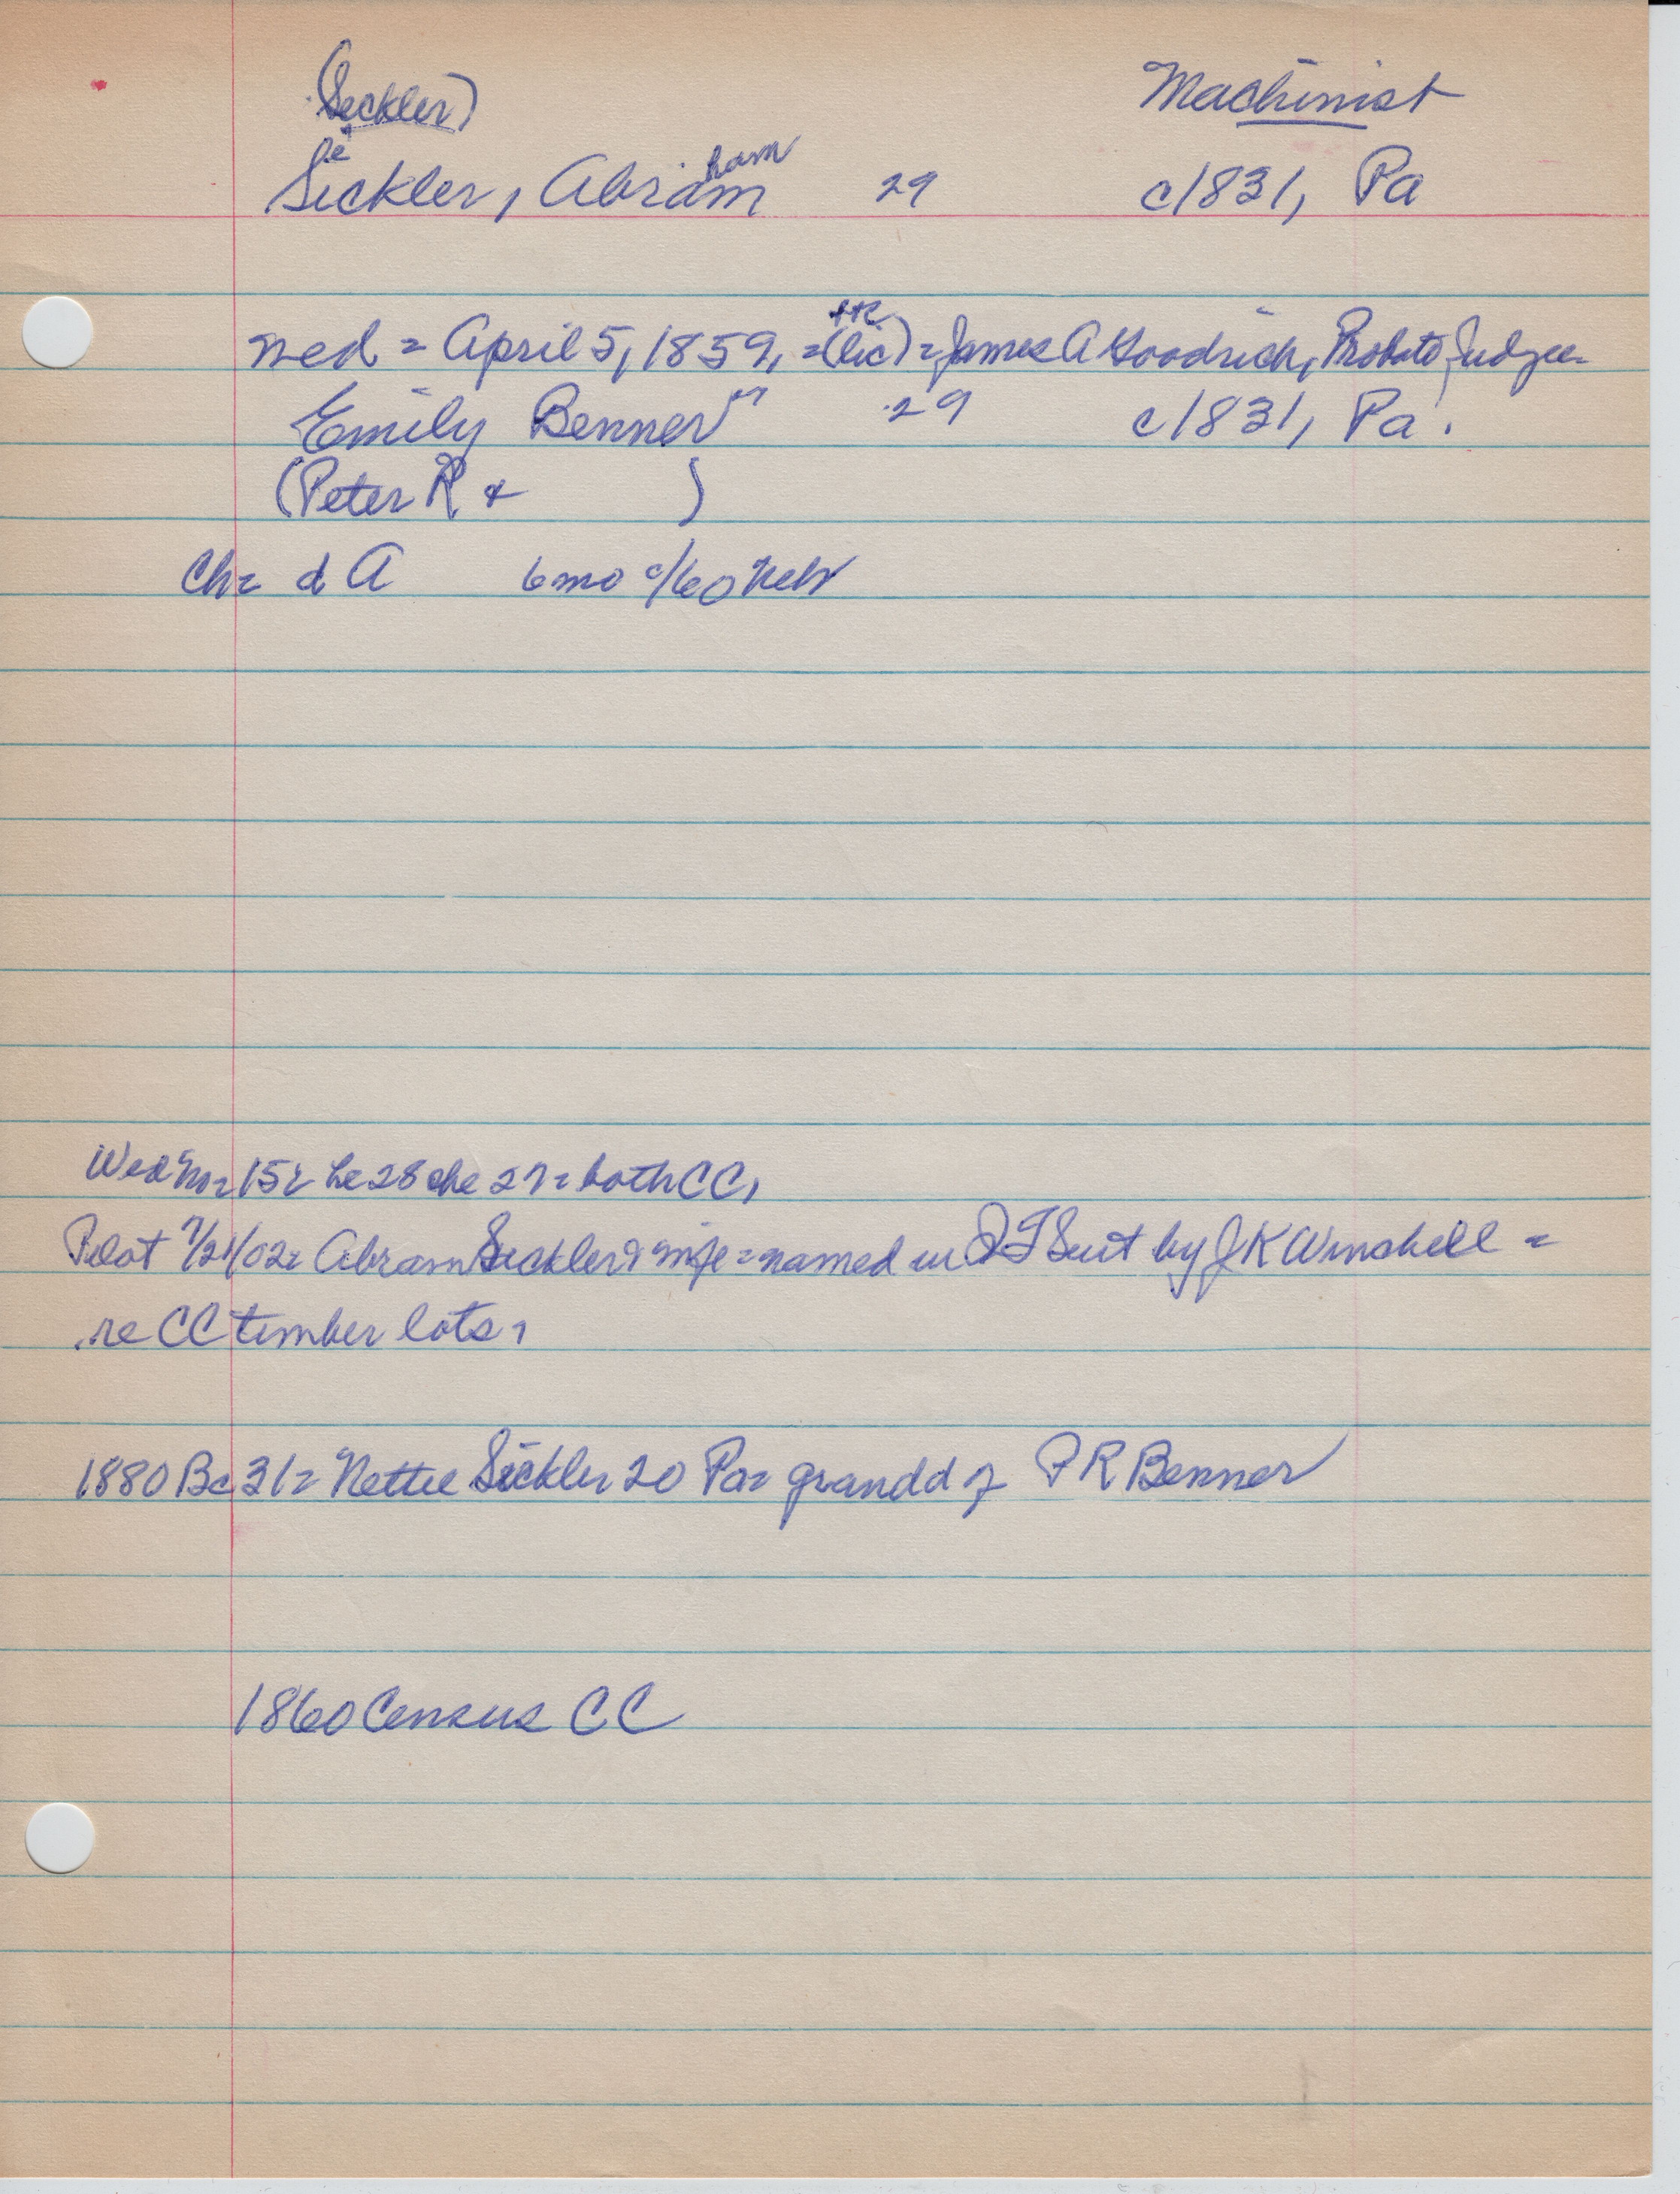 (Seckler) Machinist
ie
Seckler, Abram ham 29 c1831, Pa
med = April 5, 1859, = (lic) + R = James A Goodrich, Probate Judge =
Emily Benner 29 c1831, Pa.
(Peter R & )
Ch = d A 6 mo c/60 Nebr
15 = he 28 she 27 = both CC,
Pilot 7/21/02 = Abram Seckler & wife = named in QT Suit by J K Winshell =
re CC timber lots,
1880 Bc 31 = Nettie Sickler 20 Pa = grandd of P R Benner
1860 Census CC